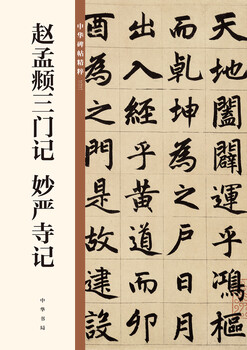 赵孟𫖯三门记 妙严寺记
中华碑帖精粹
中华书局
天地闔闢運乎鴻樞
而乾坤為之戶日月
出入經乎黃道而卯
酉為之門是故建設